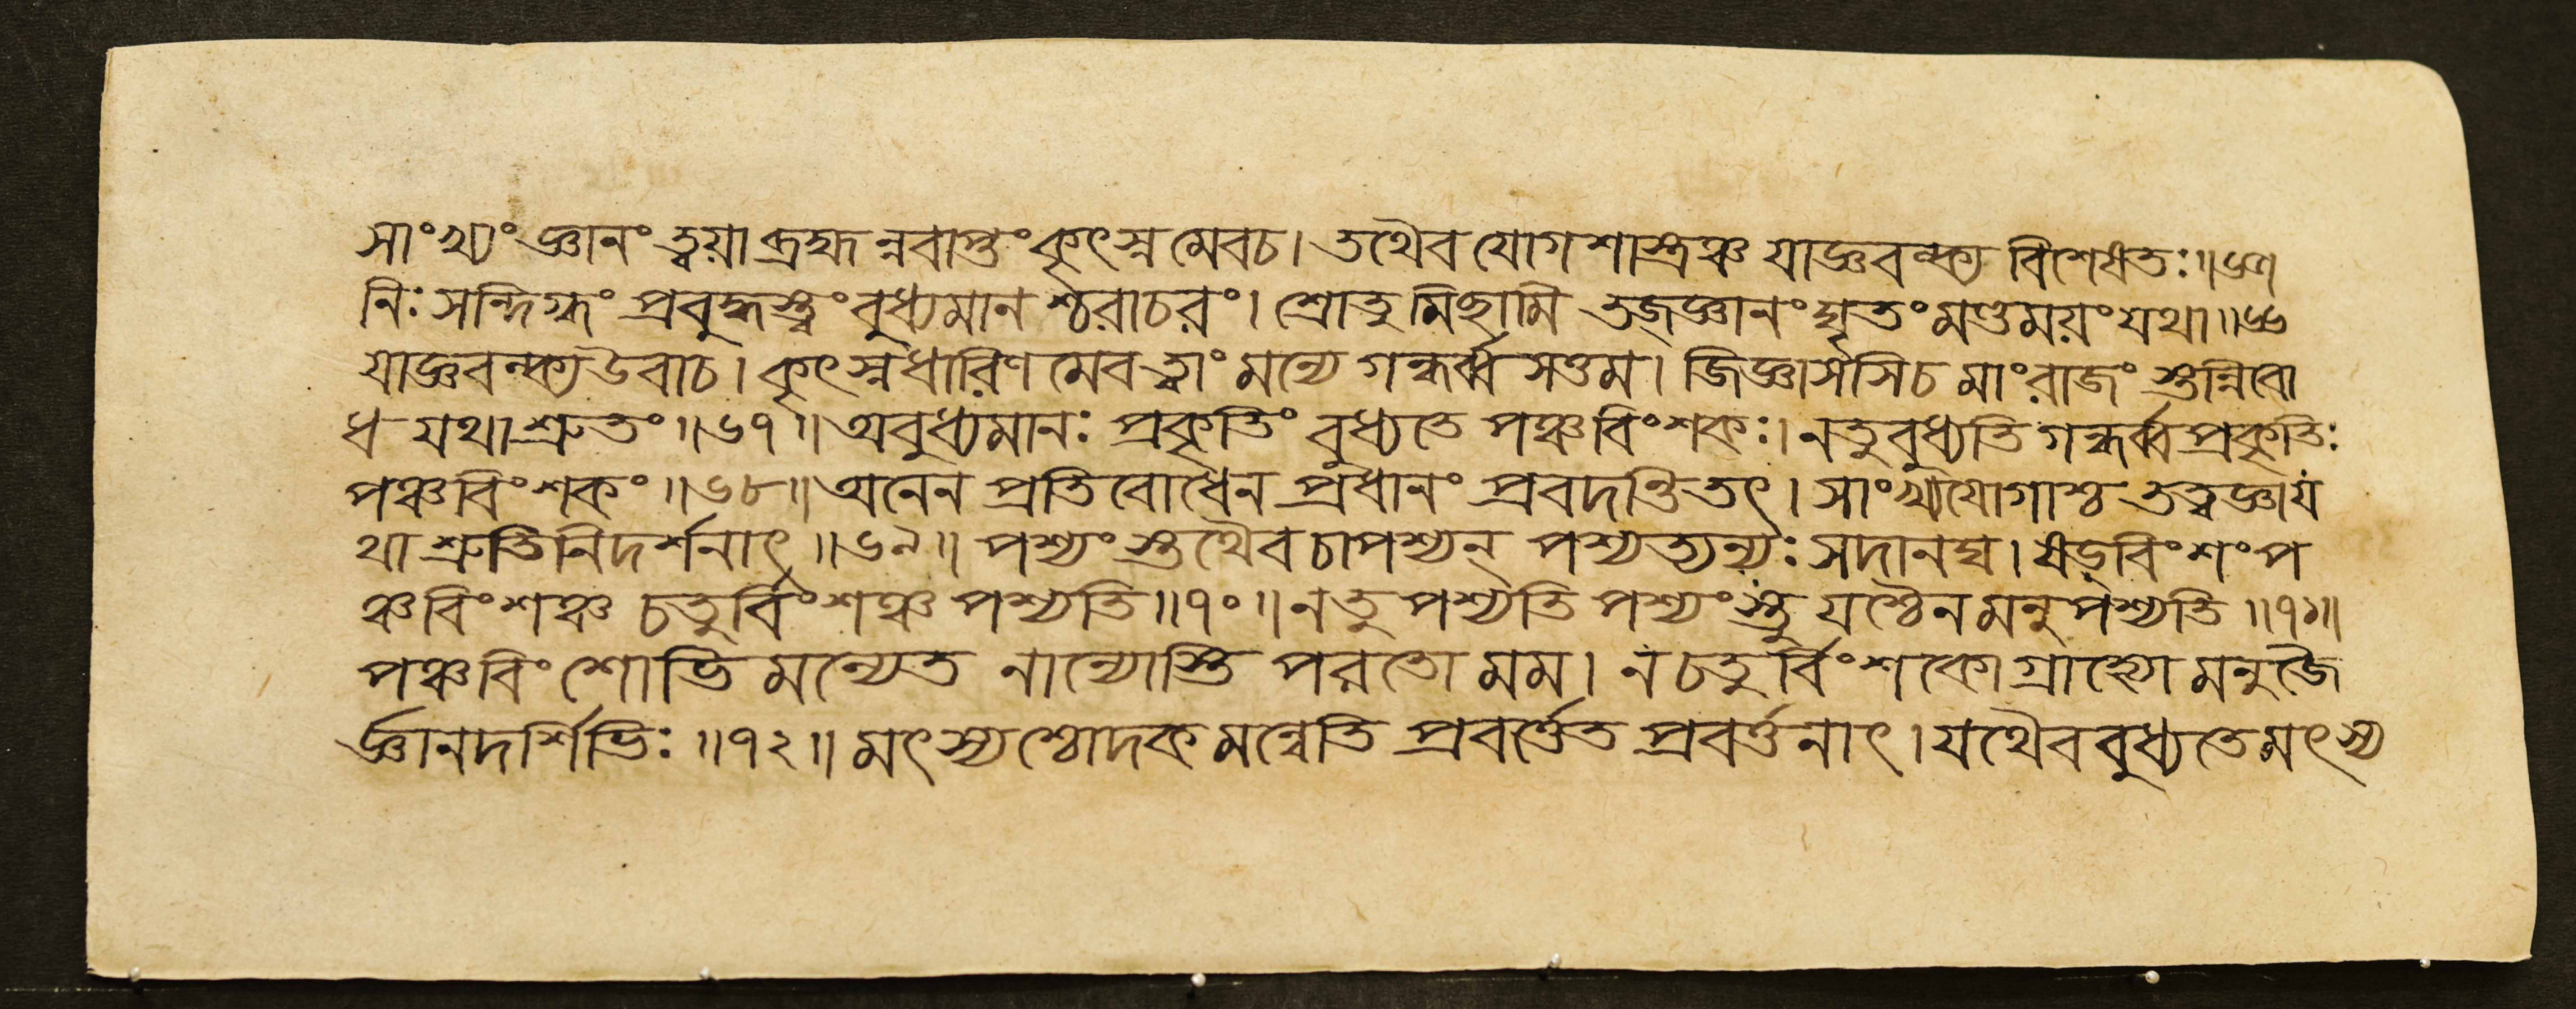 সাংখ্যং জ্ঞানং ত্বয়া ব্রহ্মন্নবাপ্তং কৃৎস্নমেবচ। তথৈব যোগশাস্ত্রঞ্চ যাজ্ঞবল্ক্য বিশেষতঃ॥৬৫
নিঃসন্দিগ্ধং প্রবুদ্ধস্ত্বং বুধ্যমানশ্চরাচরং। শ্রোতুমিছামি তজ্জ্ঞানং ঘৃতং মণ্ডময়ং যথা॥৬৬
যাজ্ঞবল্ক্য উবাচ। কৃৎস্নধারিণমেব ত্বাং মন্যে গন্ধর্ব্বসত্তম। জিজ্ঞাসসিচ মাং রাজং স্তন্নিবো
ধ যথাশ্রুতং॥৬৭॥ অবুধ্যমানঃ প্রকৃতিং বুধ্যতে পঞ্চবিংশকঃ। নতু বুধ্যতি গন্ধর্ব্ব প্রকৃতিঃ
পঞ্চবিংশকং॥৬৮॥ অনেন প্রতিবোধেন প্রধানং প্রবদন্তি তৎ। সাংখ্যযোগাশ্চ তত্ত্বজ্ঞা য
থা শ্রুতিনিদর্শনাৎ॥৬৯॥ পশ্যংস্তথৈব চাপশ্যন্ পশ্যত্যন্যঃ সদানঘ। ষড্বিংশং প
ঞ্চবিংশঞ্চ চতুর্বিংশঞ্চ পশ্যতি॥৭০॥ নতু পশ্যতি পশ্যংস্তু যশ্চৈনমনুপশ্যতি॥৭১॥
পঞ্চবিংশোভিমন্যেত নান্যোস্তি পরতো মম। ন চতুর্বিংশকো গ্রাহ্যো মনুজৈ
র্জ্ঞানদর্শিভিঃ॥৭২॥ মৎস্যশ্চোদকমন্বেতি প্রবর্ত্তেত প্রবর্ত্তনাৎ। যথৈব বুধ্যতে মৎস্য